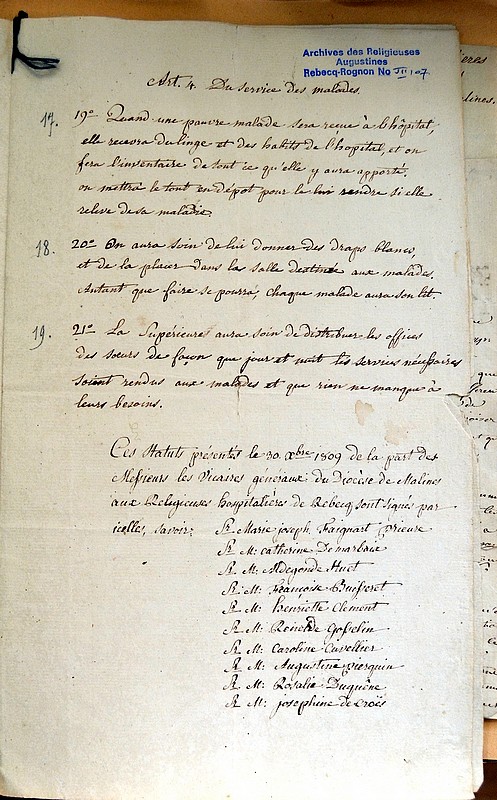 Archives des Religieuses
Augustines
Rebecq-Rognon No III 107
Art. 4. Du service des malades.
17. 19º Quand une pauvre malade sera reçue à l'hôpital,
elle recevra du linge et des habits de l'hopital, et on
fera l'inventaire de tout ce qu'elle y aura apporté.
on mettra le tout en dépot pour le lui rendre si elle
releve de sa maladie
18. 20º On aura soin de lui donner des draps blancs,
et de la placer dans la salle destinée aux malades.
Autant que faire se pourra, chaque malade aura son lit.
19. 21º La Supérieure aura soin de distribuer les offices
des soeurs de façon que jour et nuit les services nécessaires
soient rendus aux malades et que rien ne manque à
leurs besoins.
Ces Statuts présentés le 30 Xbre 1809 de la part des
Messieurs les Vicaires généraux du Diocèse de Malines
aux Religieuses hospitalières de Rebecq sont signés par
icelles, savoir: Sr Marie joseph Faignart Prieure
Sr M: catherine Demarbaix
Sr M: Aldegonde Huet
Sr M: Françoise Buisseret
Sr M: henriette Clement
Sr M: Reinelde Gosselin
Sr M: Caroline Cuvellier
Sr M: Augustine Pierquin
Sr M: Rosalie Duquêne
Sr M: josephine de Croës